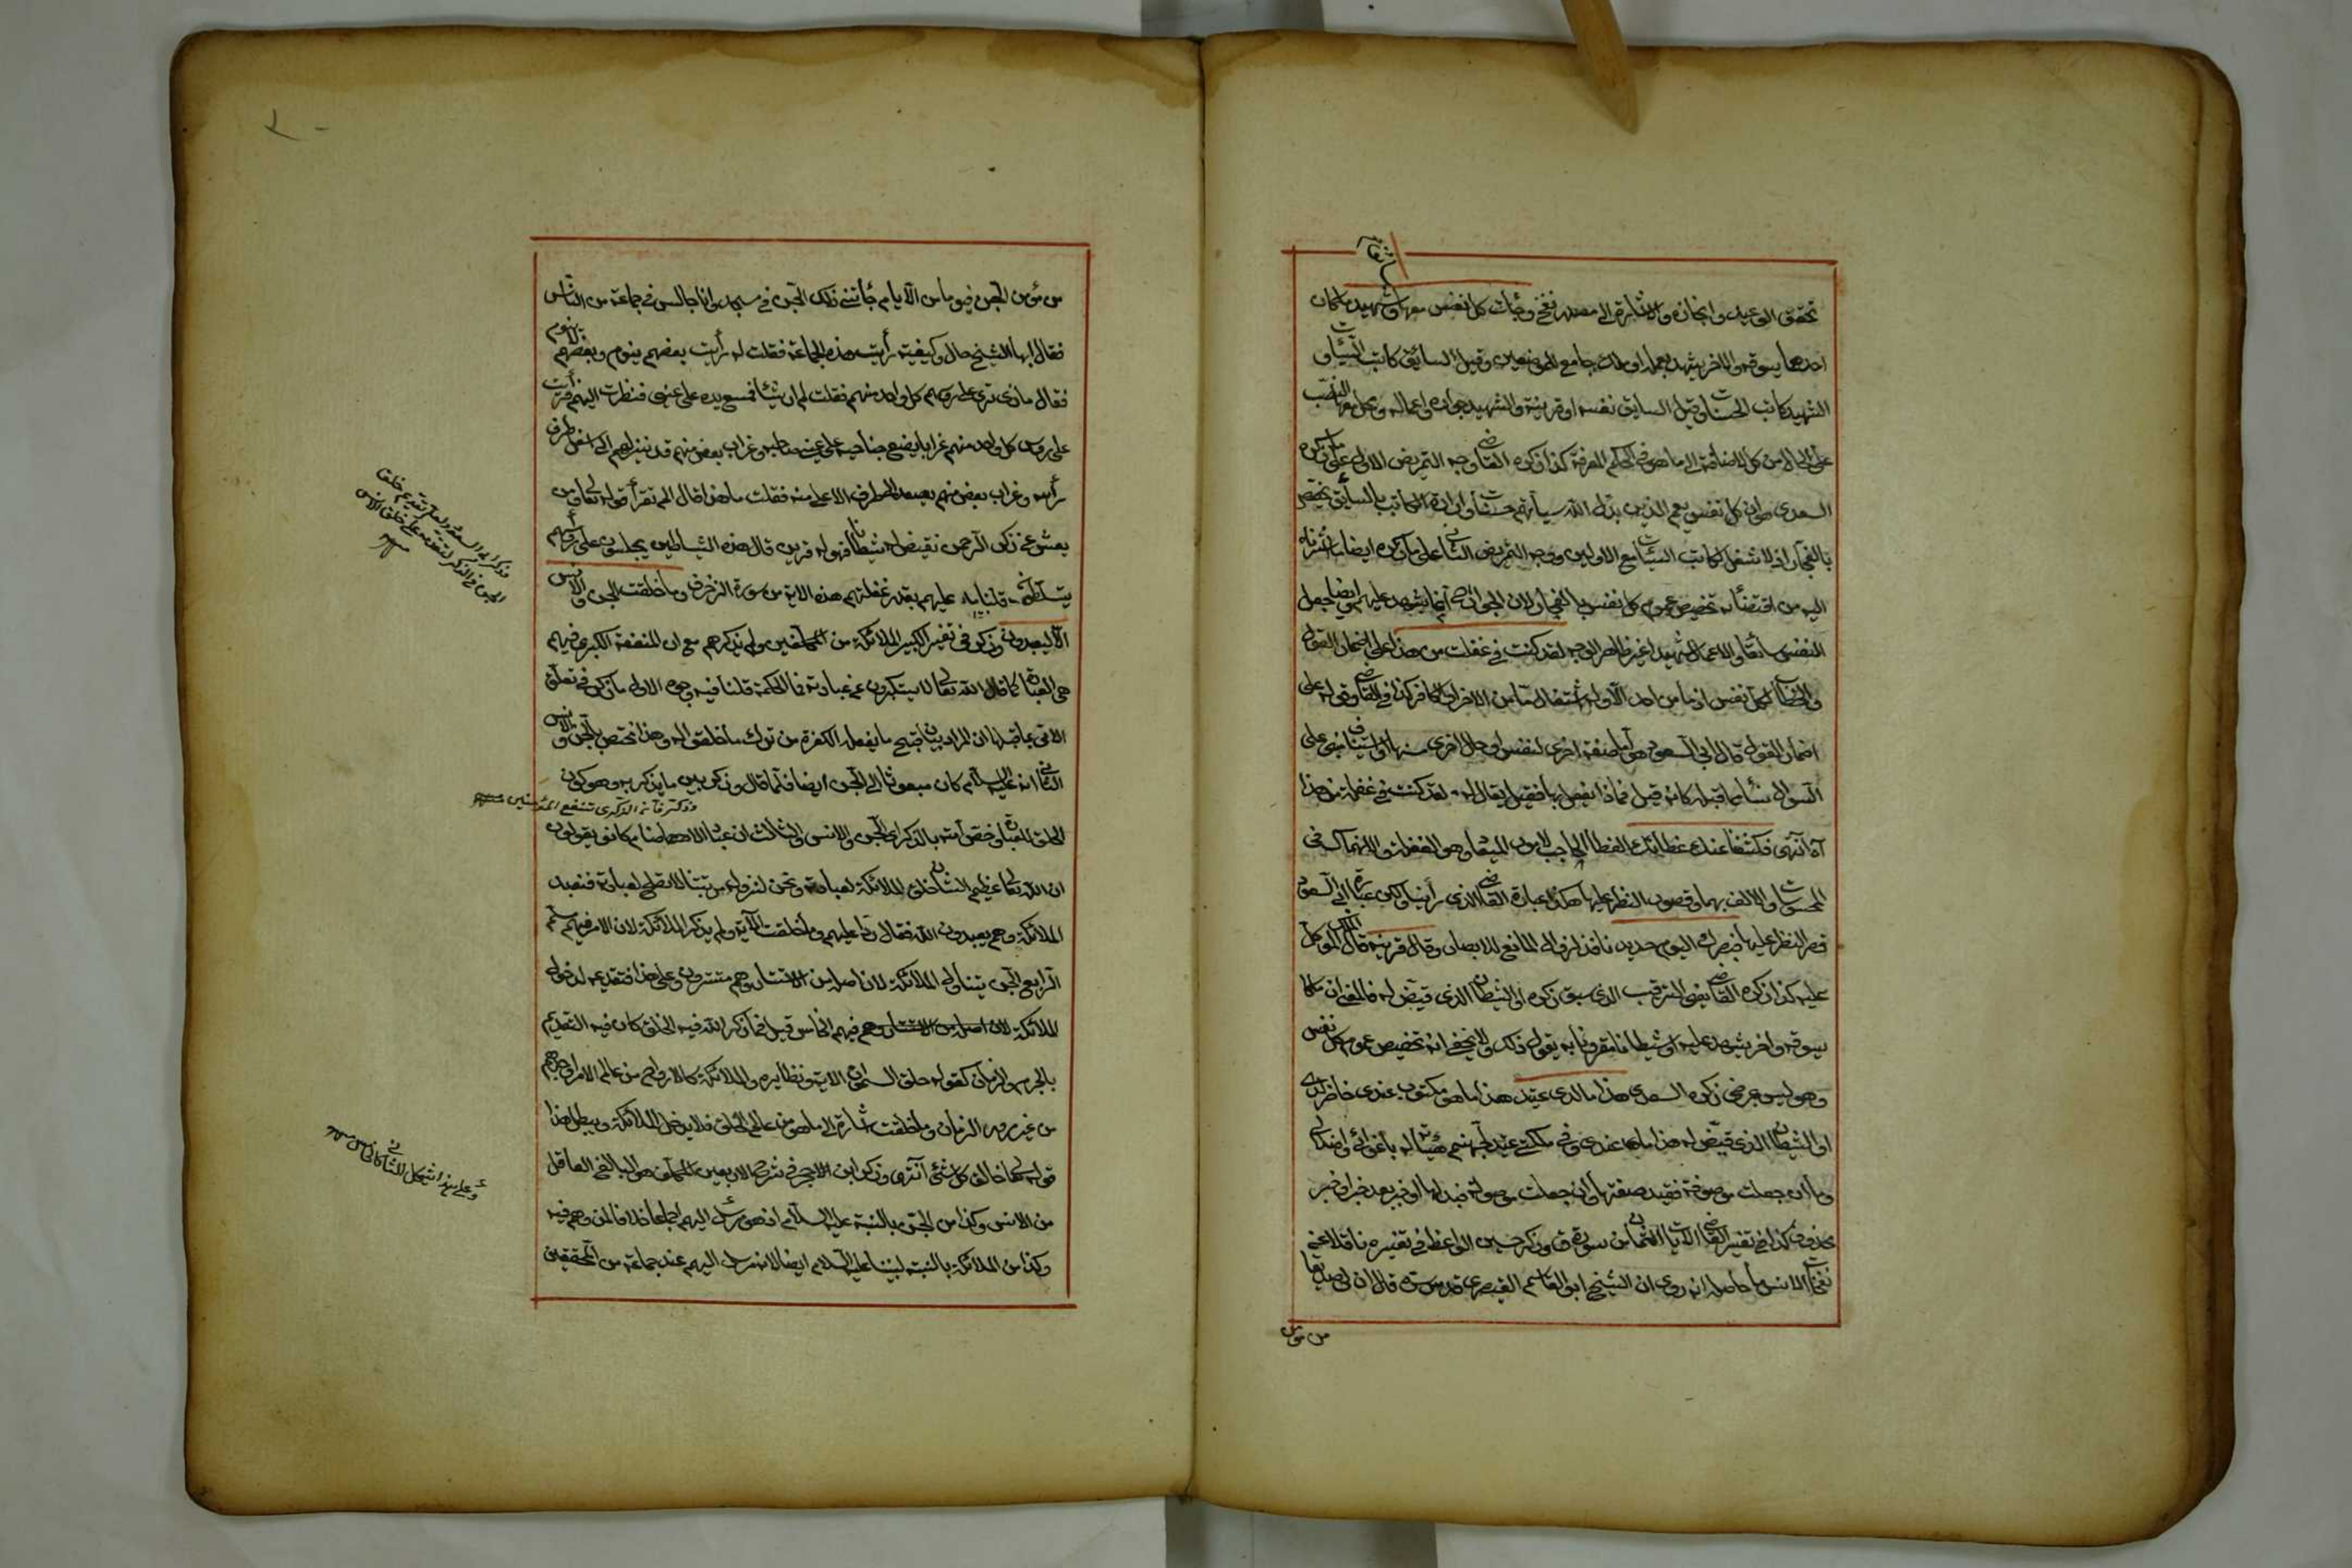 تحقق الوعيد وانجازه والاشارة الى مصدر نفخ وجاءت كل نفس معها سائق وشهيد ملكان
احدهما يسوقه والاخر يشهد بعمله او ملك جامع للوصفين وقيل السائق كاتب السيئات و
الشهيد كاتب الحسنات وقيل السائق نفسه او قرينه والشهيد جوارحه واعماله ومحل معها النصب
على الحال من كل لاضافته الى ما هو في حكم المعرفة كذا ذكره القاضي وجه التمريض الاول على ما ذكره
السعدى هو ان كل نفس يعم الذين بدل الله سيأتهم حسنات وارادة الكاتب بالسائق يختص
بالفجار اذ لا شغل لكاتب السيئات مع الاولين ووجه التمريض الثاني على ما ذكره ايضا ما اشرنا
اليه من اقتضائه تخصيص عموم كل نفس بالفجار لان الجوارح انما يشهد عليهم وايضا جعل
النفس سائقا والاعمال شهيدا غير ظاهر الوجه لقد كنت في غفلت من هذا على اضمار القول
والخطاب لكل نفس اذ ما من احد الا وله اشتغال ما من الاخرة او الكافر كذا في القاضي وقوله على
اضمار القول قال ابى السعود هو اما صفة اخرى لنفس او حال اخرى منها او استيناف مبنى على
السؤال نشأ مما قبله كانه قيل فماذا يفعل بها فقيل يقال له لقد كنت في غفلة من هذا
اه انتهى فكشفنا عنك غطائك الغطا الحاجب لامور المعاد وهو الغفلة والانهماك في
المحسوسات والالف بها وقصور النظر عليها هكذا عبارة القاضي الذى رأينا ولكن عبارة ابى السعود
قصر النظر عليها فبصرك اليوم حديد نافذ لزوال المانع للابصار وقال قرينه قال الملك الموكل
عليه كذا ذكره القاضي يعنى الرقيب الذى سبق ذكره او الشيطان الذى قيض له فالمعنى ان ملكا
يسوقه واخر يشهد عليه او شيطانا مقرونا به يقول ذلك ولا يخفى انه تخصيص عموم كل نفس
وهو ليس بمرضى ذكره السعدى هذا ما لدى عتيد هذا ما هو مكتوب عندى حاضر لدى
او الشيطان الذى قيض له هذا ما عندى وفي ملكتى عتيد لجهنم هيئته له باغوائى واضلالى
وما ان جعلت موصوفة فعتيد صفتها وان جعلت موصولة فبدلها او خبر بعد خبر او خبر
محذوف كذا في تفسير القاضي الآيات الثمان من سورة ق وذكر حسين الواعظ في تفسيره ناقلا عن
نفحات الانس ما حاصله انه روى ان الشيخ ابو القاسم القيصرى قدس سره قال ان لى صديقا
من مؤمن
من مؤمن الجن فيوما من الايام جائنى ذلك الجن في مسجد وانا جالس في جماعة من الناس
فقال ايها الشيخ حال وكيفية رأيت هذه الجماعة فقلت له رأيت بعضهم بنوم وبعضهم بلا نوم
فقال ماذى ترى على رؤسهم كل واحد منهم فقلت لم ار شيئا فمسح يده على عينى فنظرت اليهم فرأيت
على روس كل واحد منهم غرابا يضع جناحيه على عينى صاحبه وغراب بعض منهم قد نيزلهم الى اسفل طرف
رأسه وغراب بعض منهم يصعد الى طرف الاعلى منه فقلت ما هذا قال الم تقرأ قوله تعالى ومن
يعش عن ذكر الرحمن نقيض له شيطانا فهو له قرين قال هذه الشياطين يجلسون على رؤسهم
يتسلطن قلنا به عليهم بقدر غفلتهم هذه الاية من سورة الزخرف وما خلقت الجن والانس
الا ليعبدون وذكر في تفسير الكبير الملائكة من المكلفين ولم يذكرهم مع ان المنفعة الكبرى فيهم
هى العبادة كما قال الله تعالى لا يستكبرون عن عبادته فما الحكمة قلنا فيه وجوه الاول ما ذكر في تعلق
الاية بما قبلها ان المراد بيان قبح ما يفعله الكفرة من ترك ما خلقوا له وهذا مختص بالجن والانس
الثانى انه عليه السلام كان مبعوثا الى الجن ايضا فلما قال وذكر بين ما يذكر به وهو كون
الخلق للعبادة وخص امته بالذكر اى الجن والانس والثالث ان عباد الاصنام كانو يقولون
ان الله تعالى عظيم الشان خلق الملائكة لعبادته ونحن لنزول مرتبتنا لا نصلح لعبادة فنعبد
الملائكة وهم يعبدون الله فقال ردا عليهم وما خلقت الآية ولم يذكر الملائكة لان الامر فيهم مسلم
الرابع الجن يتناول الملائكة لان اصله من الاستتار وهم مستترون وعلى هذا فتقديمه لدخول
الملائكة لان اصله من الاستتار وهم فيهم الخامس قيل فما ذكر الله فيه الخلق كان فيه التقديم
بالجرم والزمان كقوله خلق السموات الاية ونظايره والملائكة كالارواح من عالم الامر اوجدهم
من غير مرور الزمان وما خلقت اشارة الى ما هو من عالم الخلق فلا يدخل الملائكة ويبطل هذا
قوله تعالى خالق كل شئ انتهى وذكر ابن الاحجر في شرح الاربعين المكلف هو البالغ العاقل
من الانس وكذا من الجن بالنسبة عليه السلام اذ هو مرسل اليهم اجماعا خلافا لمن وهم فيه
وكذا من الملائكة بالنسبة لنبينا عليه السلام ايضا لانه مرسل اليهم عند جماعة من المحققين
وذكر فان الذكرى تنفع المؤمنين